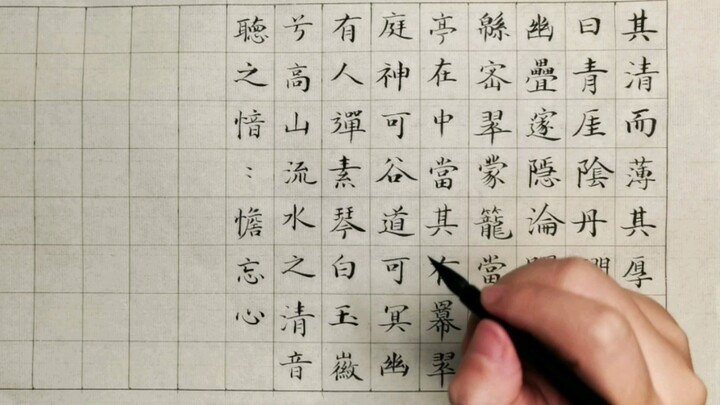 其清而薄其厚
曰青厓陰丹
幽疊邃隱淪
緜宻翠蒙籠當
亭在中當其冪翠
庭神可谷道可冥幽
有人彈素琴白玉徽
兮高山流水之清音
聽之愔：憺忘心